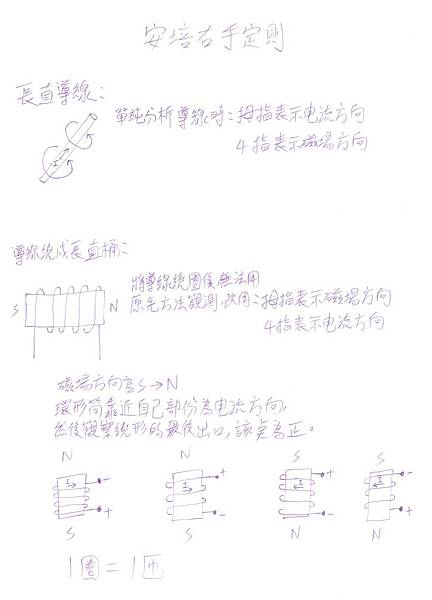 安培右手定則
長直導線:
單純分析導線時:拇指表示电流方向
4指表示磁場方向
I
導線繞成長直桶:
將導線繞圈後無法用
原先方法觀測,改用:拇指表示磁場方向
4指表示电流方向
S N
磁場方向為S→N
環形筒靠近自己部份為电流方向,
然後觀察繞形的最後出口,該点為正。
N N S S
I - I - I + I +
+ + - -
S S N N
1圈=1匝